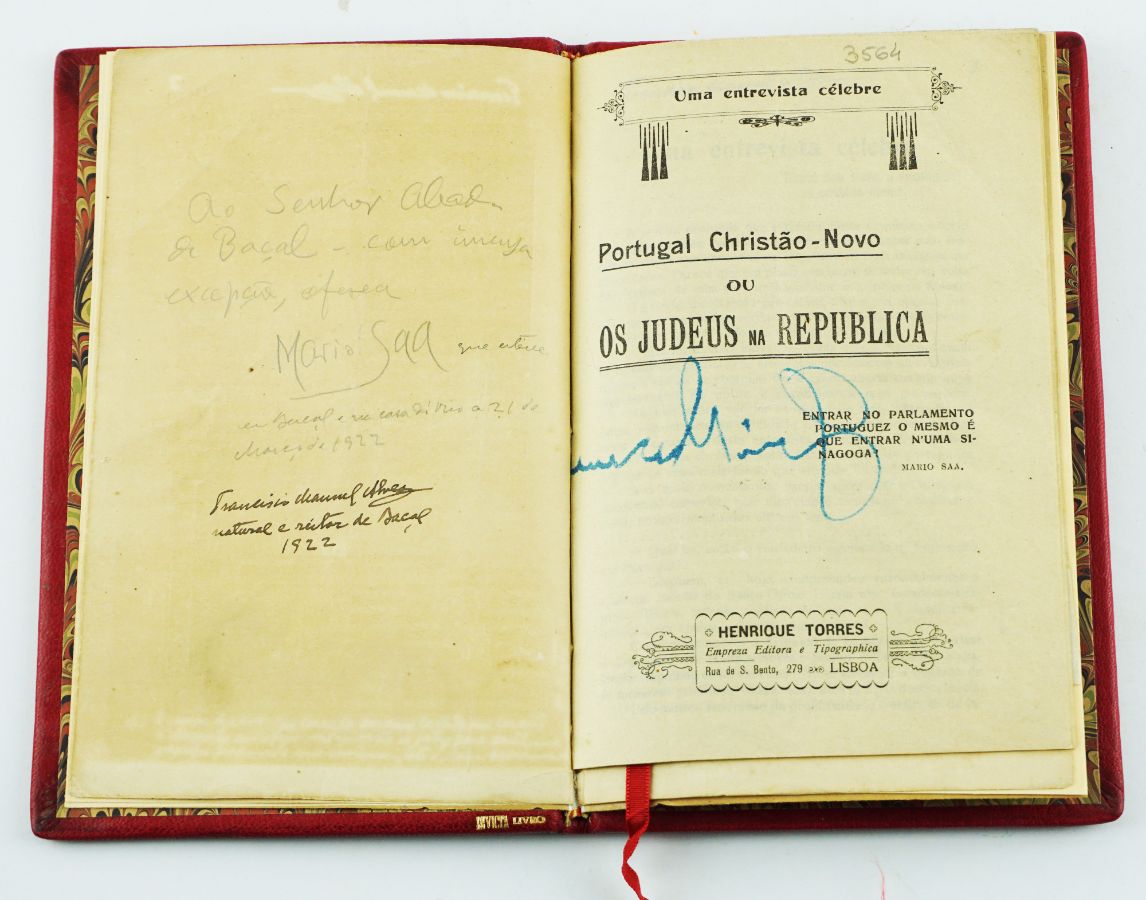 Ao Senhor Abade
de Baçal – com
excepção, oferece
Mario Saa que esteve
em Baçal e na casa d
Março de 1922
Francisco Manuel Alves
natural e reitor de Baçal
1922
INVICTA LIVRO
3564
Uma entrevista célebre
Portugal Christão-Novo
OU
OS JUDEUS NA REPUBLICA
ENTRAR NO PARLAMENTO
PORTUGUEZ O MESMO É
QUE ENTRAR N'UMA SI-
NAGOGA!
MARIO SAA.
HENRIQUE TORRES
Empreza Editora e Tipographica
Rua de S. Bento, 279 LISBOA